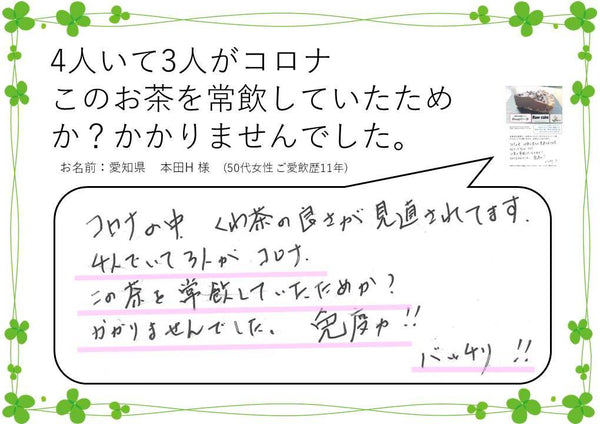 4人いて3人がコロナ
このお茶を常飲していたため
か？かかりませんでした。
お名前：愛知県　本田H 様　(50代女性 ご愛飲歴11年)
コロナの中　くわ茶の良さが見直されてます.
4人でいて3人が コロナ.
この茶を常飲していたためか?
かかりませんでした。　免疫力!!
バッチリ!!